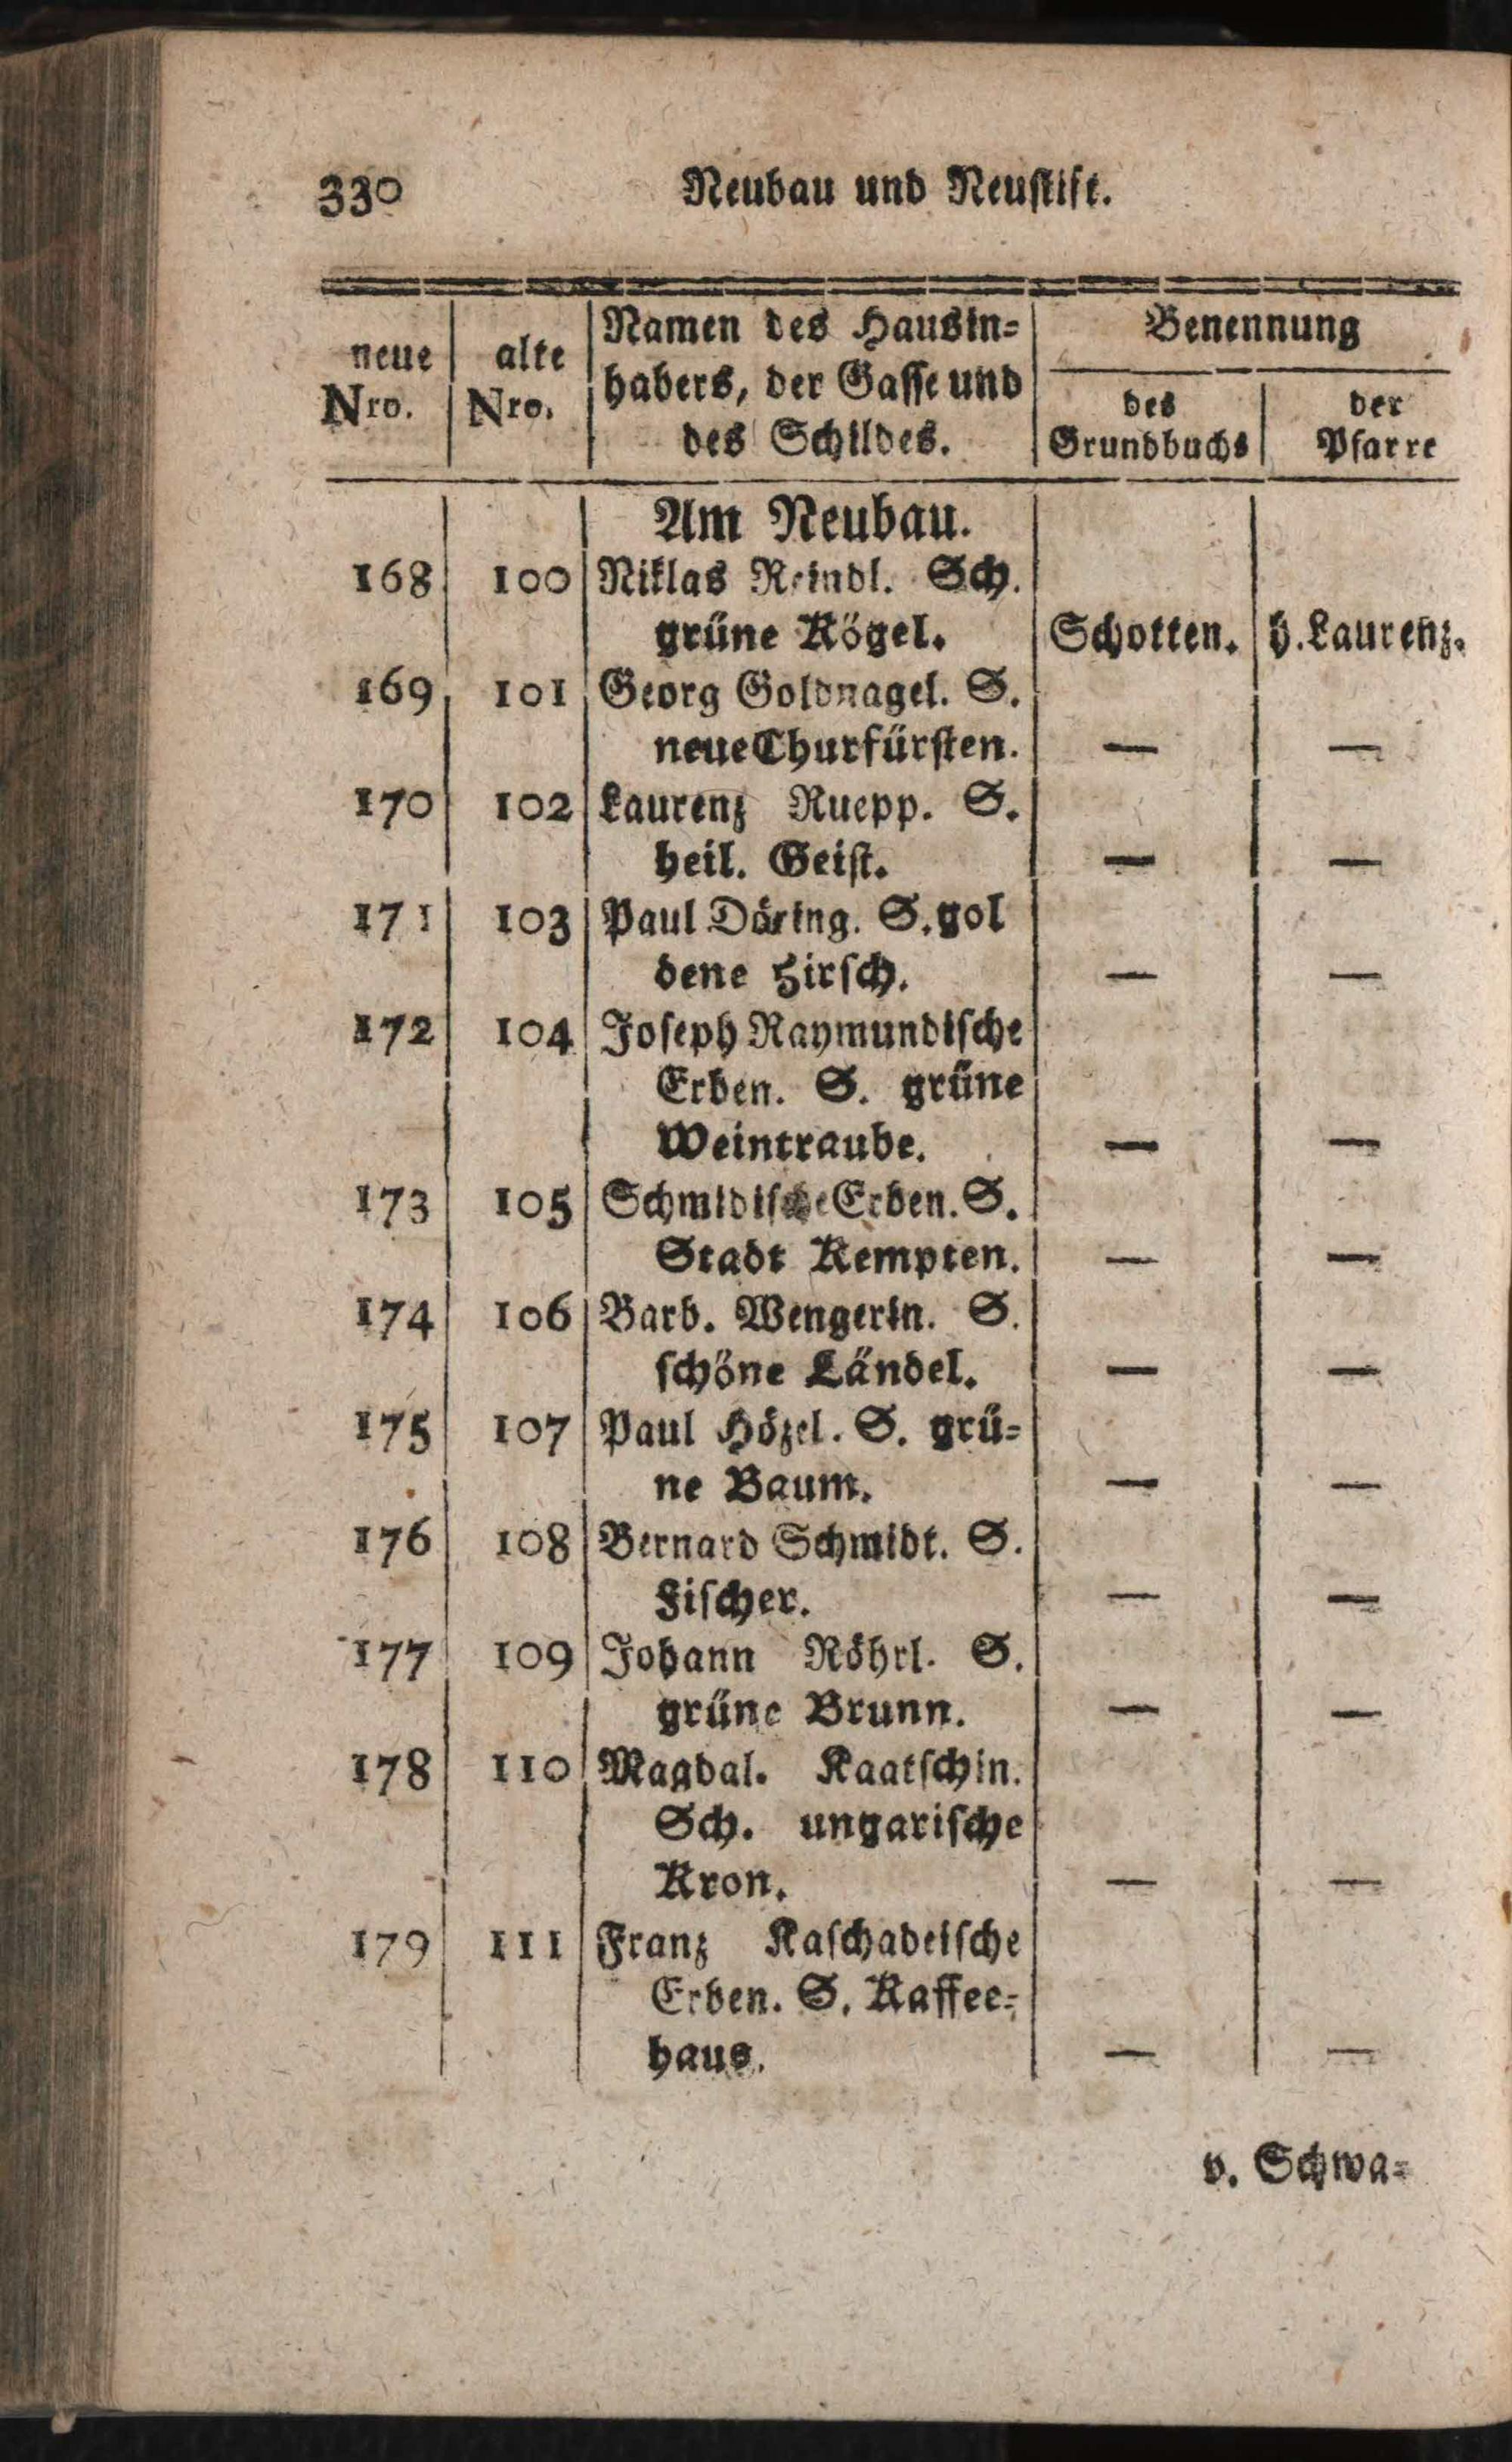 330 Neubau und Neustift.
neue Nro. | alte Nro. | Namen des Hausin=
habers, der Gasse und
des Schildes. | Benennung
des Grundbuchs | der Pfarre
Am Neubau.
168 100 Niklas Reindl. Sch.
grüne Kögel. Schotten. h. Laurenz.
169 101 Georg Goldnagel. S.
neue Churfürsten. — —
170 102 Laurenz Ruepp. S.
heil. Geist. — —
171 103 Paul Döring. S. gol
dene Hirsch. — —
172 104 Joseph Raymundische
Erben. S. grüne
Weintraube. — —
173 105 Schmidische Erben. S.
Stadt Kempten. — —
174 106 Barb. Wengerin. S.
schöne Ländel. — —
175 107 Paul Hözel. S. grü=
ne Baum. — —
176 108 Bernard Schmidt. S.
Fischer. — —
177 109 Johann Röhrl. S.
grüne Brunn. — —
178 110 Magdal. Kaatschin.
Sch. ungarische
Kron. — —
179 111 Franz Kaschadeische
Erben. S. Kaffee=
haus. — —
v. Schwa=